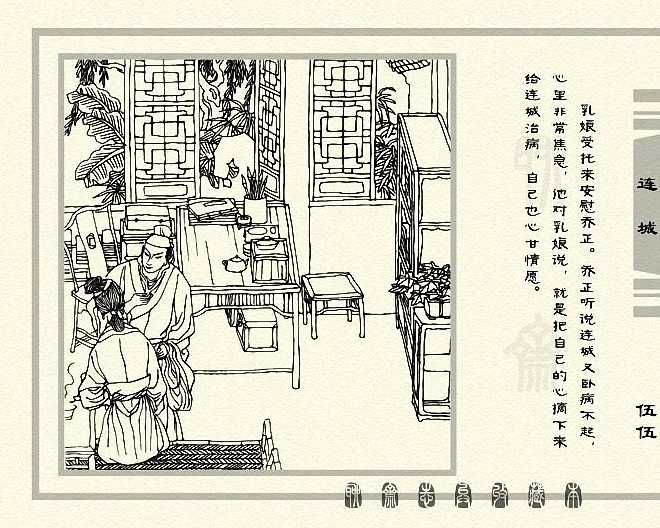 乳娘受托来安慰乔正。乔正听说连城又卧病不起，
心里非常焦急，他对乳娘说，就是把自己的心摘下来
给连城治病，自己也心甘情愿。
连城
伍伍
聊斋志异收藏本